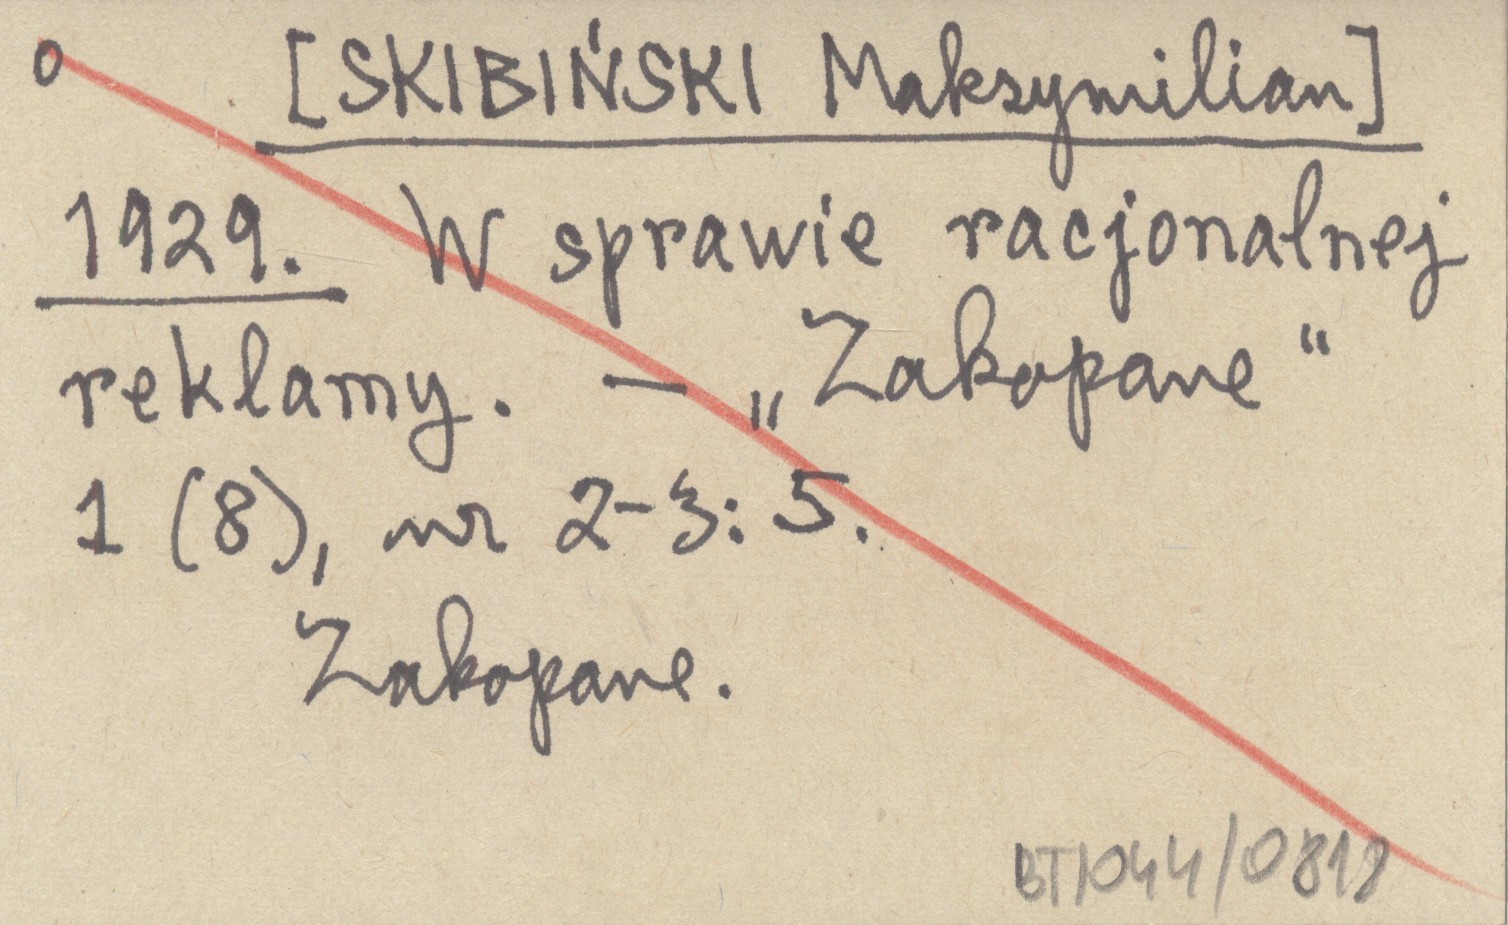 o [SKIBIŃSKI Maksymilian]
1929. W sprawie racjonalnej
reklamy. — „Zakopane“
1 (8), nr 2-3: 5.
Zakopane.
BT1044/0818